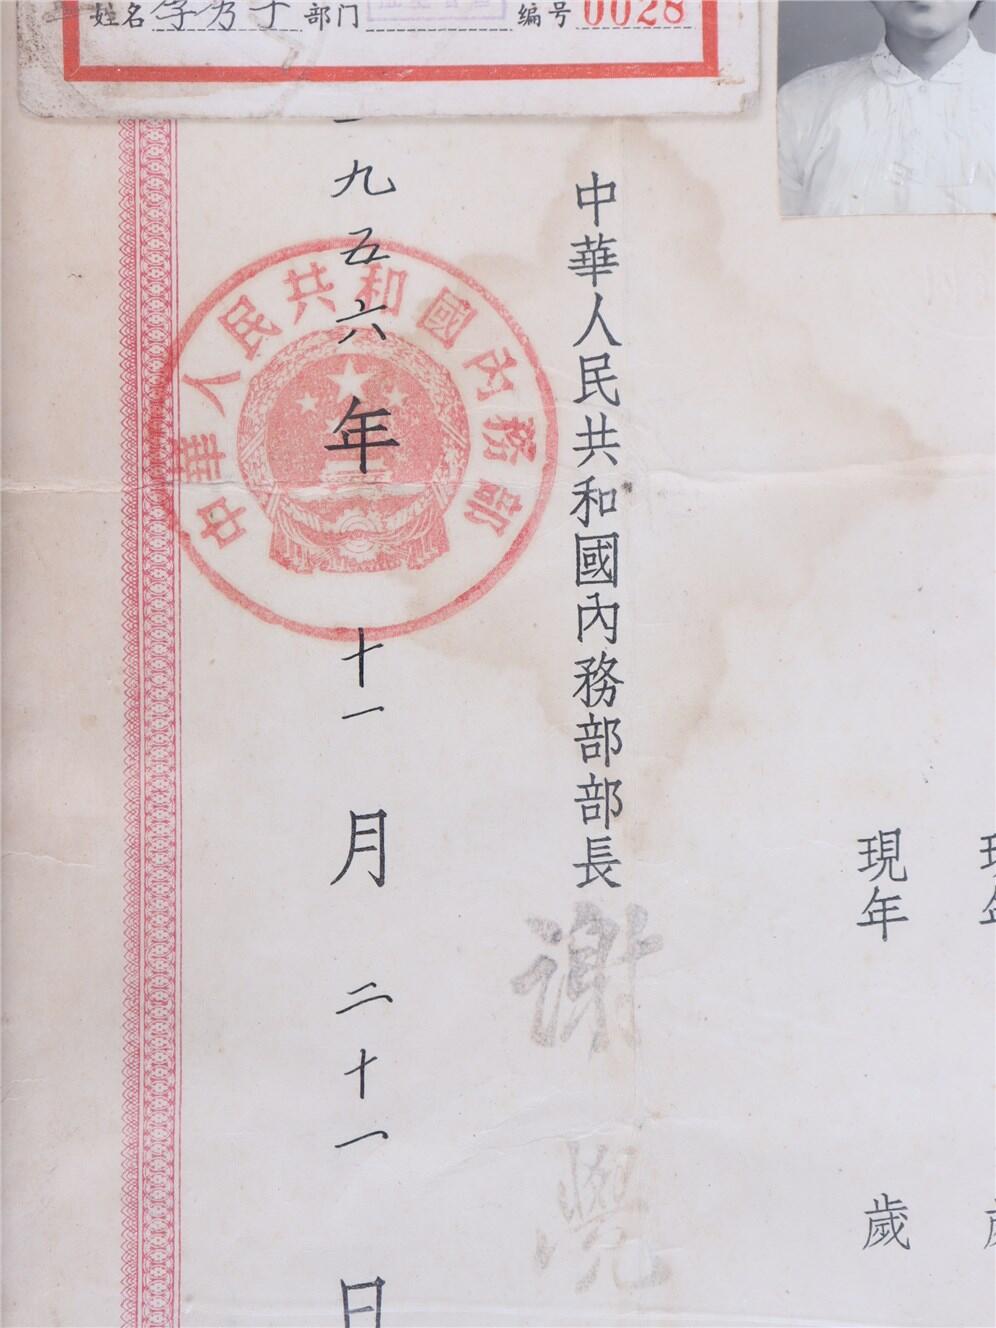 姓名 李乃千 部门 编号 0028
現年 歲
中華人民共和國內務部部長 謝覺
中華人民共和國內務部
一九五六年十一月二十一日